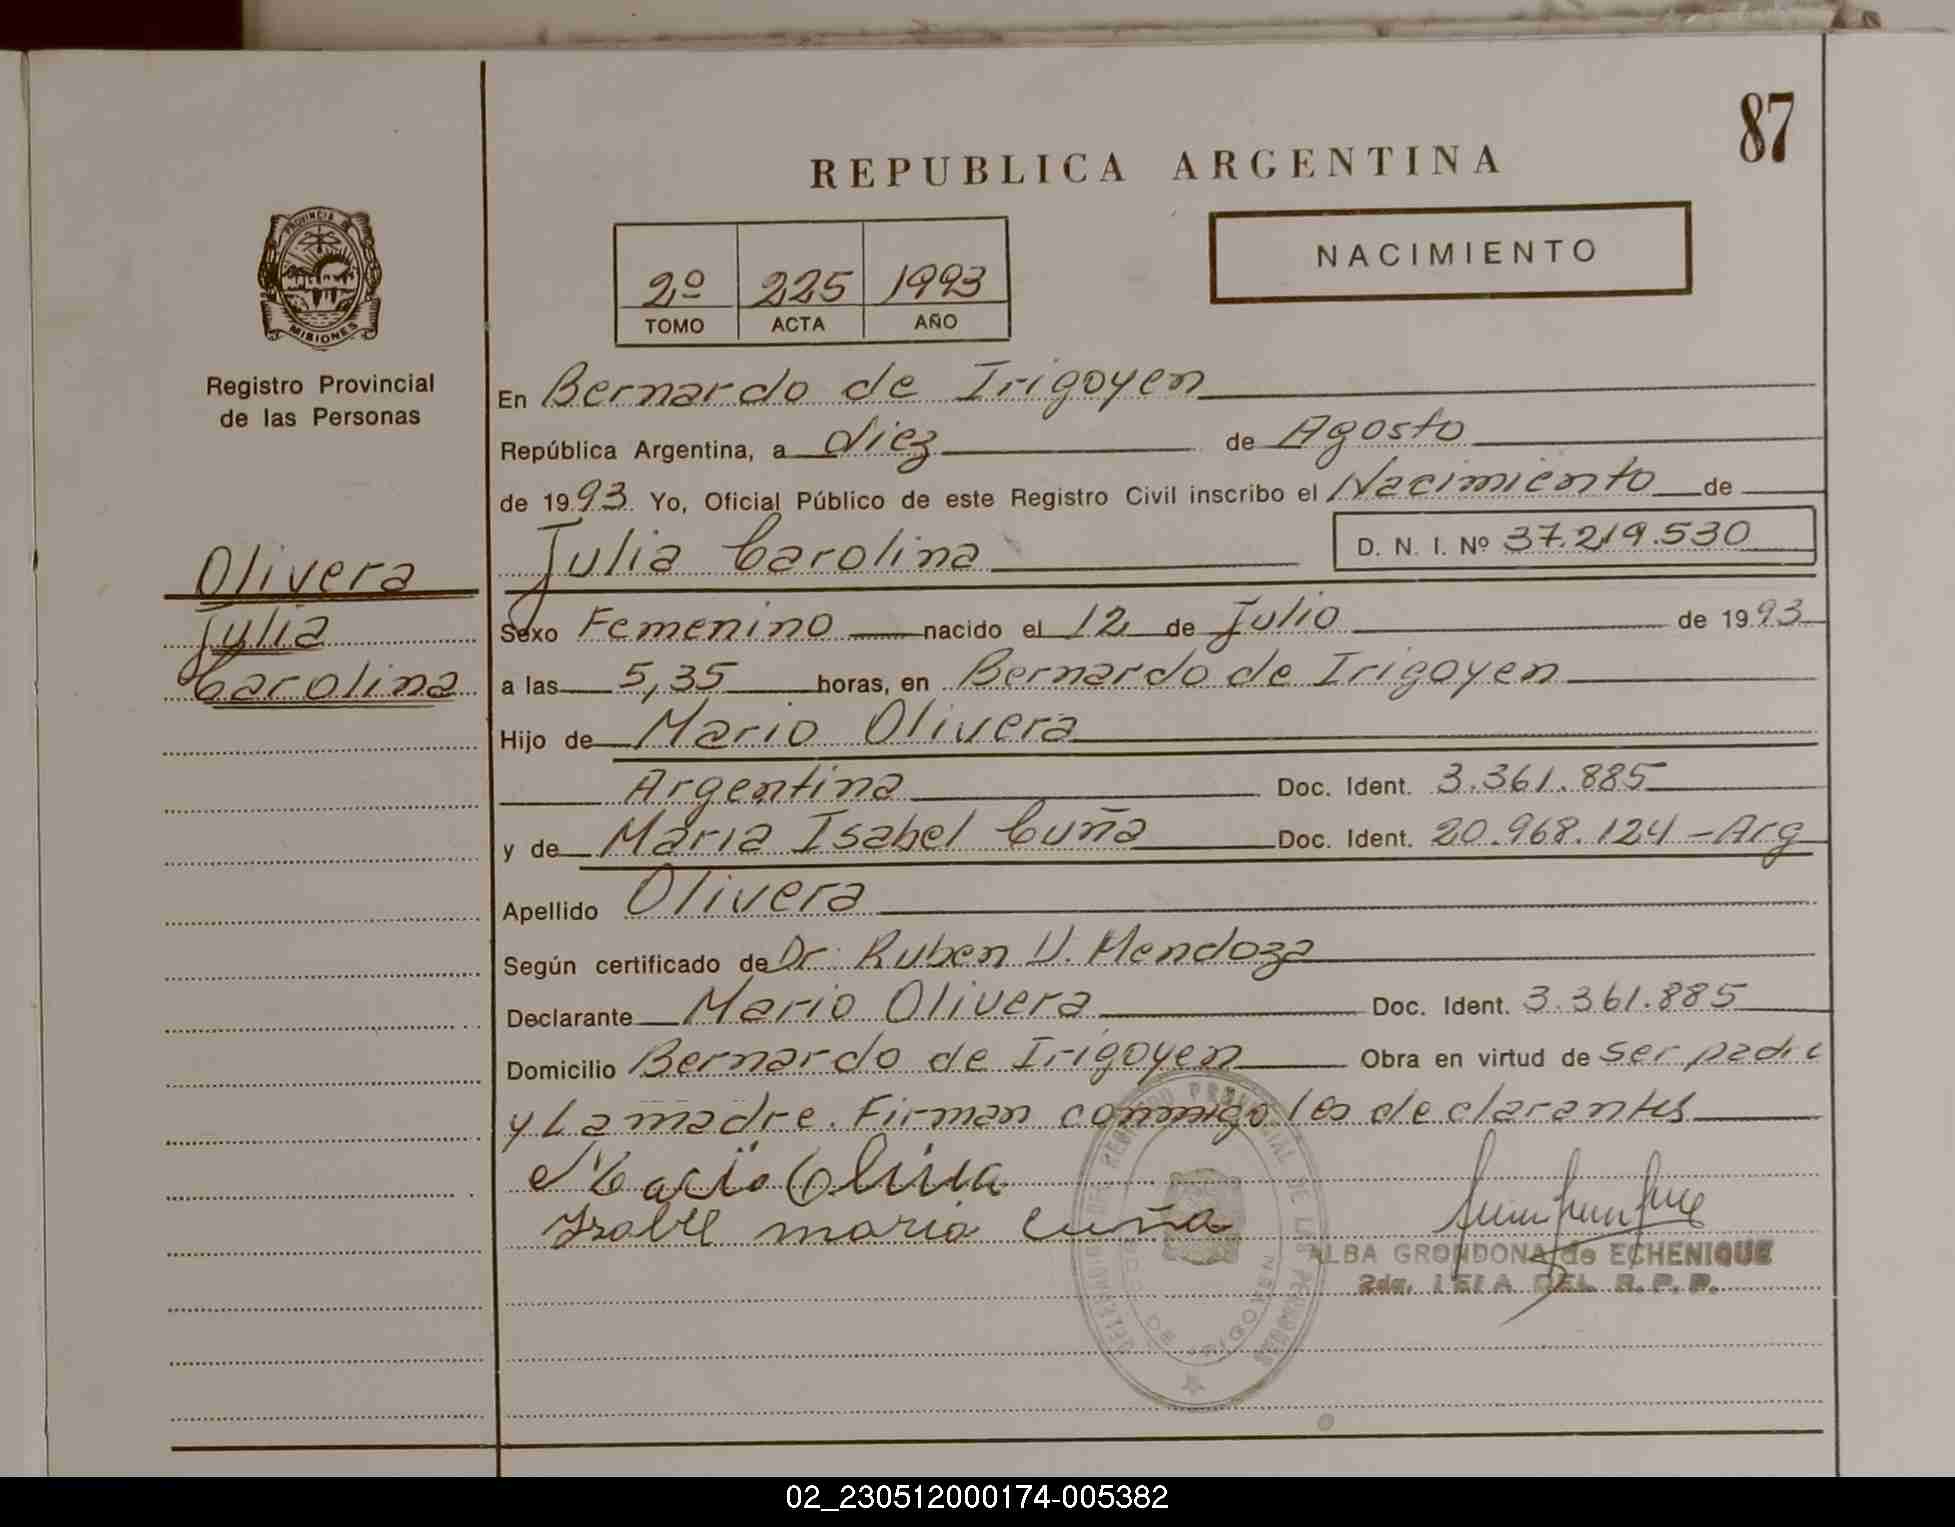 87
REPUBLICA ARGENTINA
NACIMIENTO
2º 225 1993
TOMO ACTA AÑO
PROVINCIA
MISIONES
Registro Provincial
de las Personas
Olivera
Julia
Carolina
En Bernardo de Irigoyen
República Argentina, a diez de Agosto
de 1993. Yo, Oficial Público de este Registro Civil inscribo el Nacimiento de
Julia Carolina D. N. I. Nº 37.219.530
Sexo Femenino nacido el 12 de Julio de 1993
a las 5,35 horas, en Bernardo de Irigoyen
Hijo de Mario Olivera
Argentina Doc. Ident. 3.361.885
y de Maria Isabel Cuña Doc. Ident. 20.968.124-Arg
Apellido Olivera
Según certificado de Dr. Ruben U. Mendoza
Declarante Mario Olivera Doc. Ident. 3.361.885
Domicilio Bernardo de Irigoyen Obra en virtud de ser padre
y La madre. Firman conmigo los declarantes
Mario Olivera
Isabel maria cuña
ALBA GRONDONA de ECHENIQUE
DEL R.P.P.
02_230512000174-005382